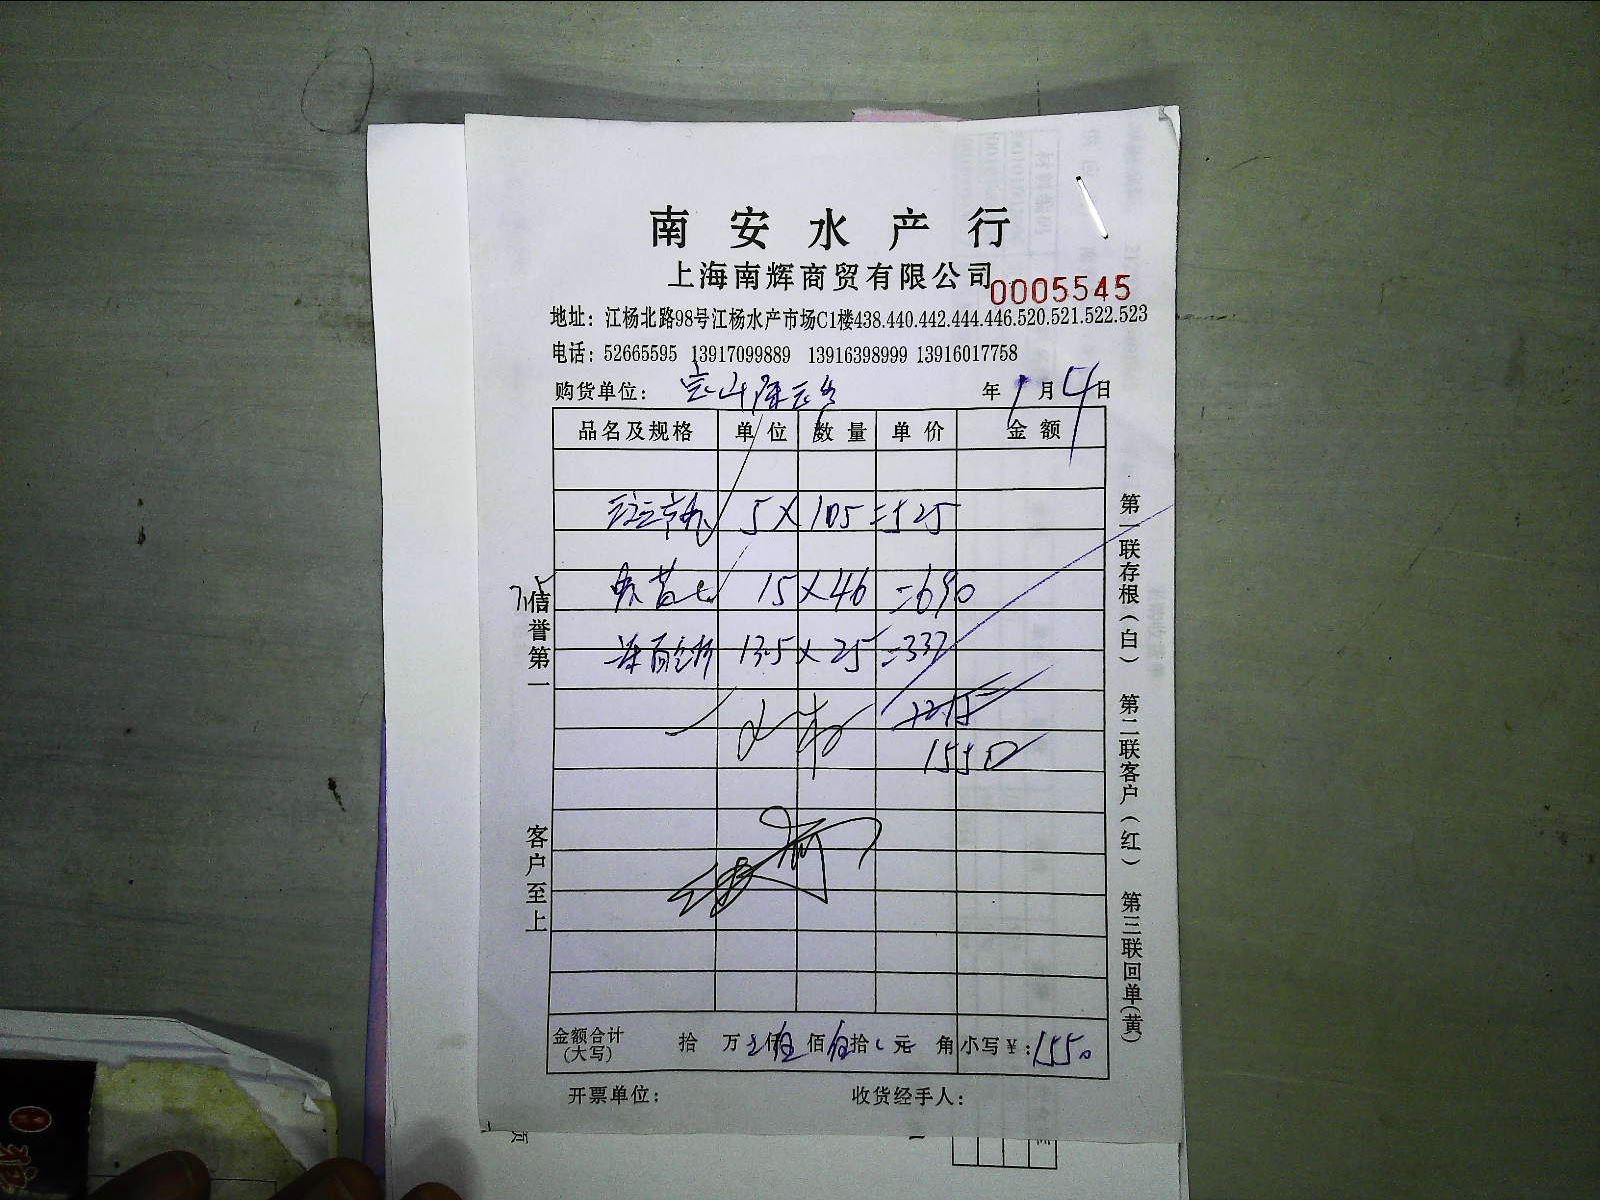 南安水产行
上海南辉商贸有限公司
0005545
地址：江杨北路98号江杨水产市场C1楼438.440.442.444.446.520.521.522.523
电话：52665595 13917099889 13916398999 13916017758
购货单位：宝山 年1月4日
品名及规格 单位 数量 单价 金额
5×105=525
15×46=690
13.5×25=337
1550
信誉第一
客户至上
第一联存根（白） 第二联客户（红） 第三联回单（黄）
金额合计（大写） 拾 万 仟伍佰伍拾 元 角 小写￥：1550
开票单位： 收货经手人：